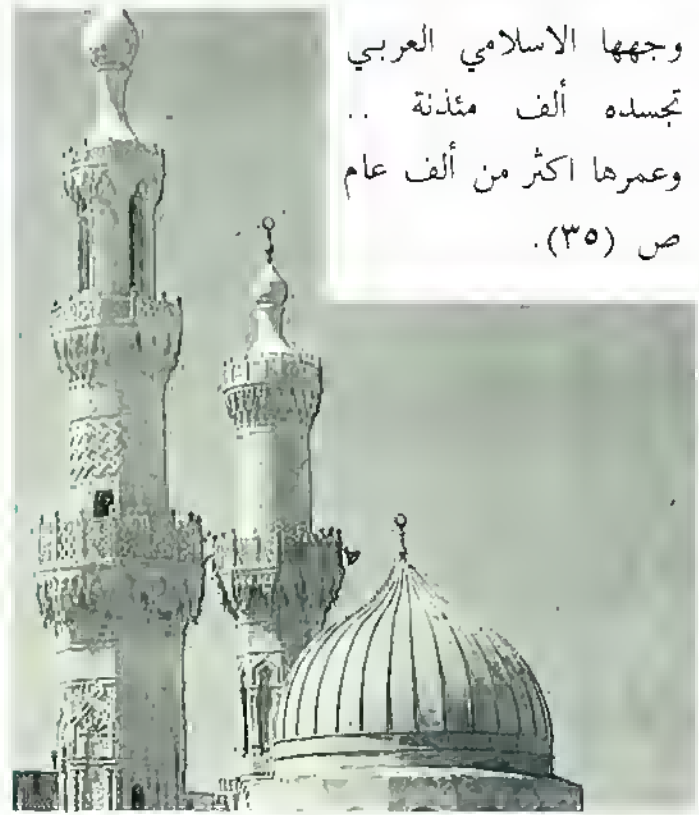 وجهها الاسلامي العربي
تجسده ألف مئذنة ..
وعمرها اكثر من ألف عام
ص (٣٥).